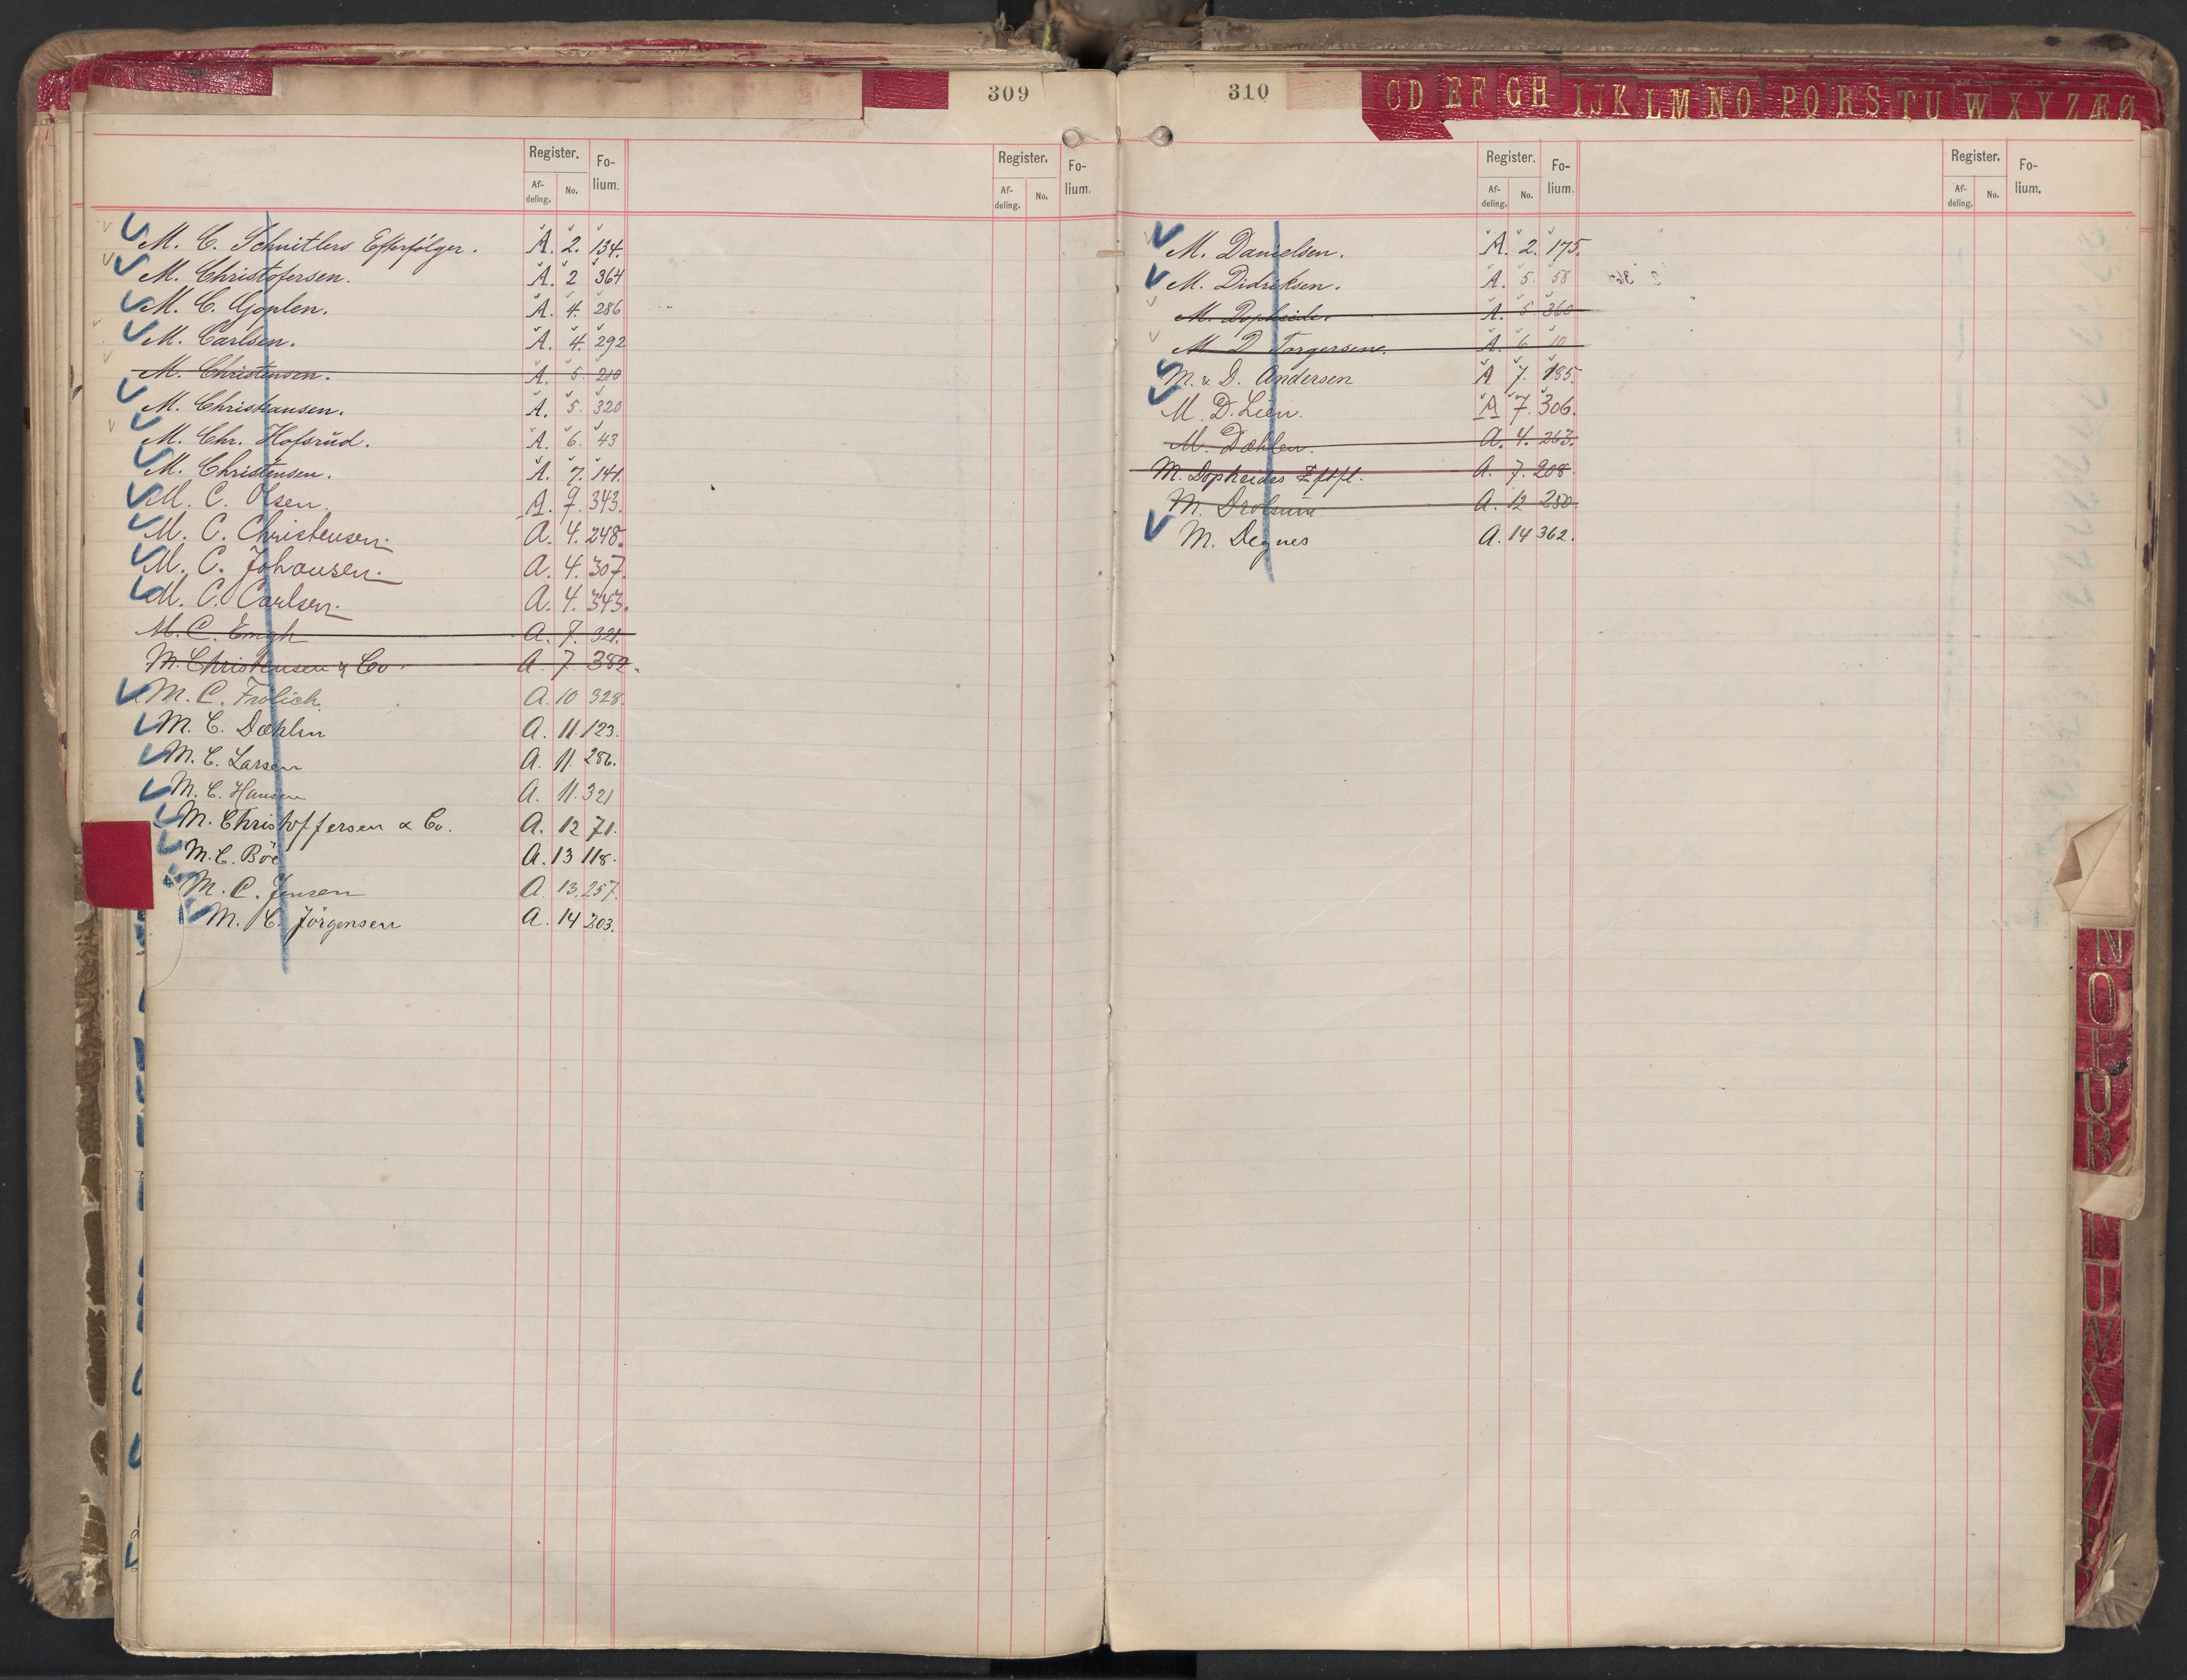 309
Register. Fo-lium. Register. Fo-lium.
Af-deling. No. Af-deling. No.
M. C. Schnitlers Efterfölger. A. 2. 134.
M. Christofersen. A. 2 364
M. C. Gonlen. A. 4. 286
M. Carlsen. A. 4. 292
M. Christensen. A. 5. 210
M. Christiansen. A. 5. 320
M. Chr. Hofsrud. A. 6. 43
M. Christensen. A. 7. 141.
M. C. Olsen. A. 9. 343.
M. C. Christensen. A. 4. 248.
M. C. Johansen. A. 4. 307.
M. C. Carlsen. A. 4. 343.
M. C. Engh A. 7. 321.
M. Christensen & Co. A. 7. 382.
M. C. Frölich. A. 10 328.
M. C. Dæhlin A. 11. 123.
M. C. Larsen A. 11. 286.
M. C. Hansen A. 11. 321
M. Christoffersen & Co. A. 12 71.
M. C. Böe A. 13 118.
M. C. Jensen A. 13. 257.
M. C. Jörgensen A. 14 203.
310
CD EF GH IJK LM NO PQ RS TU W XYZÆØ
Register. Fo-lium. Register. Fo-lium.
Af-deling. No. Af-deling. No.
M. Danielsen. A. 2. 175.
M. Didriksen. A. 5. 58
M. Dopheide. A. 5. 360
M. D. Torgersen. A. 6. 10
M. & D. Andersen A 7. 185.
M. D. Lien. A 7. 306.
M. Dæhlen. A. 4. 263.
M. Dopheides Eftfl. A. 7. 208.
M. Drolsum A. 12 250.
M. Degnes A. 14 362.
N
O